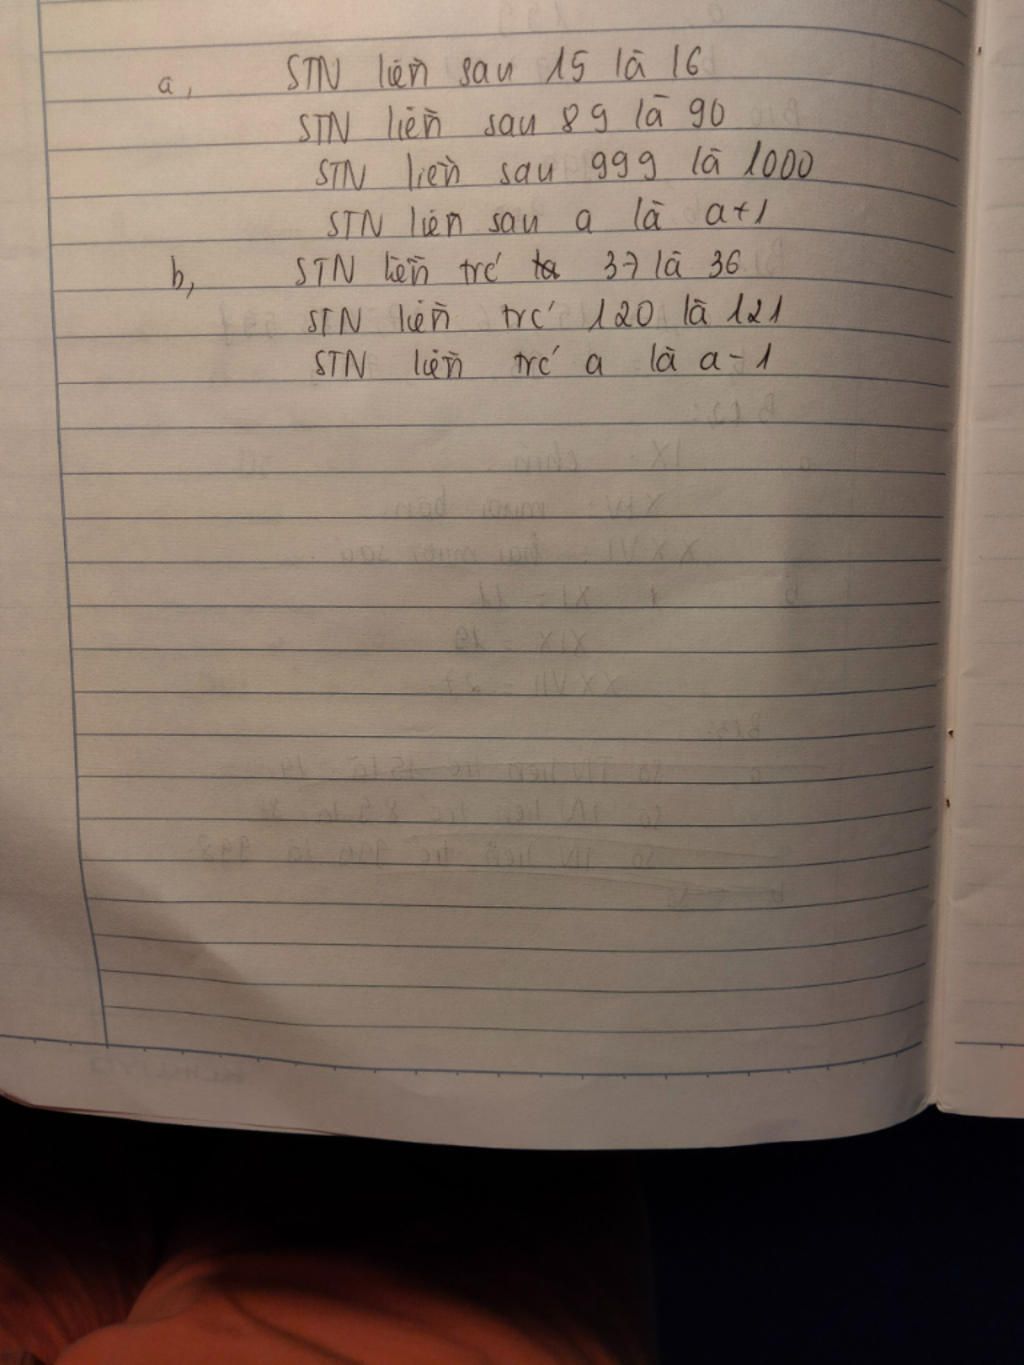 a, STN liền sau 15 là 16
STN liền sau 89 là 90
STN liền sau 999 là 1000
STN liền sau a là a+1
b, STN liền trc' 37 là 36
STN liền trc' 120 là 121
STN liền trc' a là a-1